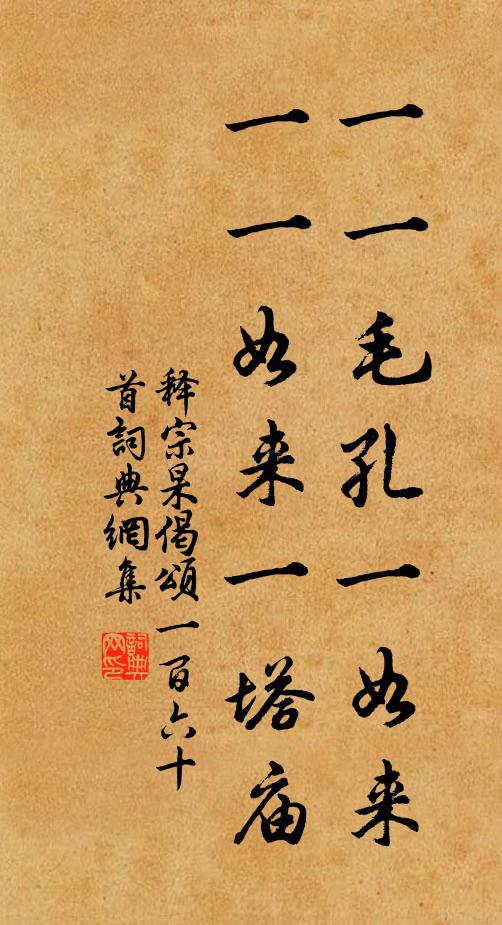 一一毛孔一如来
一一如来一塔庙
释宗杲偈頌一百六十
首詞典網集
詞典
网印